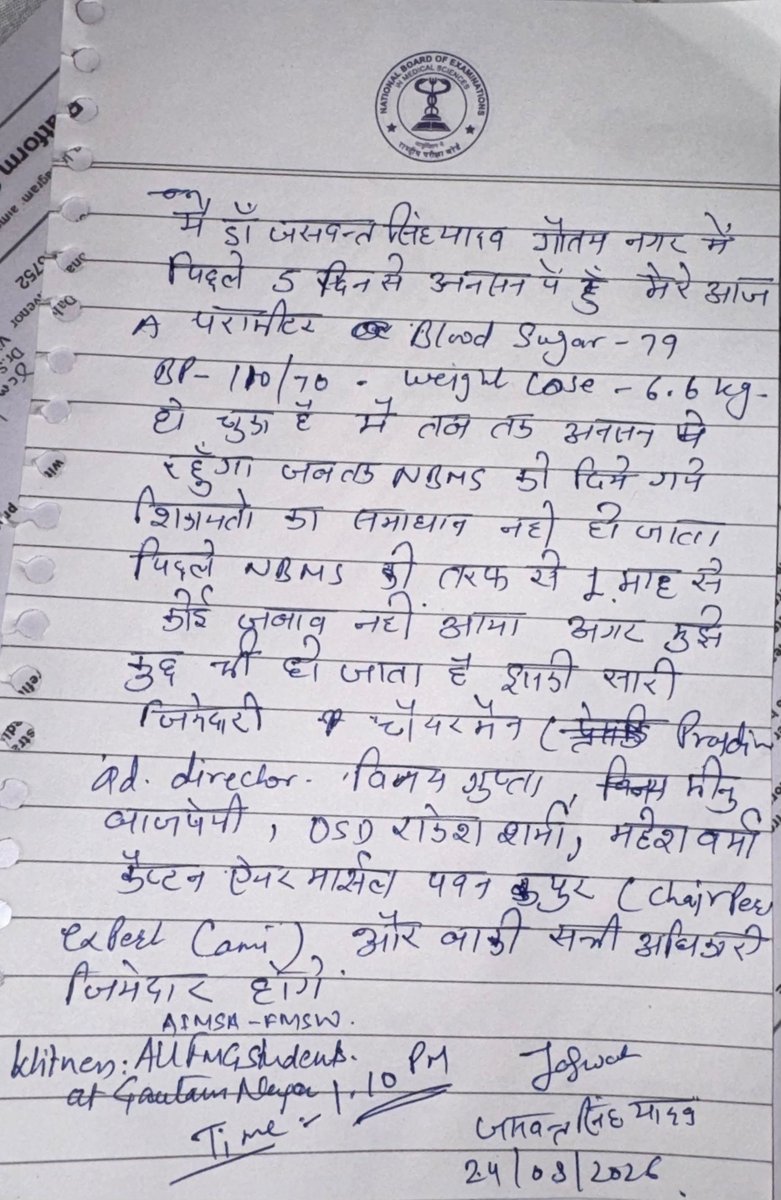 NATIONAL BOARD OF EXAMINATIONS
IN MEDICAL SCIENCES
राष्ट्रीय परीक्षा बोर्ड
मैं डॉ जसवन्त सिंह यादव गौतम नगर में
पिछले 5 दिन से अनसन पें हूँ मेरे आज
A परामीटर Blood Sugar - 79
BP - 110/70 - Weight Lose - 6.6 kg -
हो चुका है मैं तब तक अनसन पे
रहूँगा जबतक NBMS को दिये गये
शिकायतो का समाधान नही हो जाता
पिछले NBMS की तरफ से 1 माह से
कोई जबाव नहीं आया अगर मुझे
कुछ भी हो जाता है इसकी सारी
जिमेदारी चैयरमैन (
ad. director. विनय गुप्ता, मीनु
बाजपेयी, OSD राकेश शर्मा, महेश वर्मा
कैप्टन ऐयर मार्सल पवन कपुर (Chair
expert और बाकी सभी अधिकारी
जिमेदार होगे
AIMSA - FMSW.
Witness: All FMG students.
at Gautam Nagar 1.10 PM
Time :-
जसवन्त सिंह यादव
24/08/2026